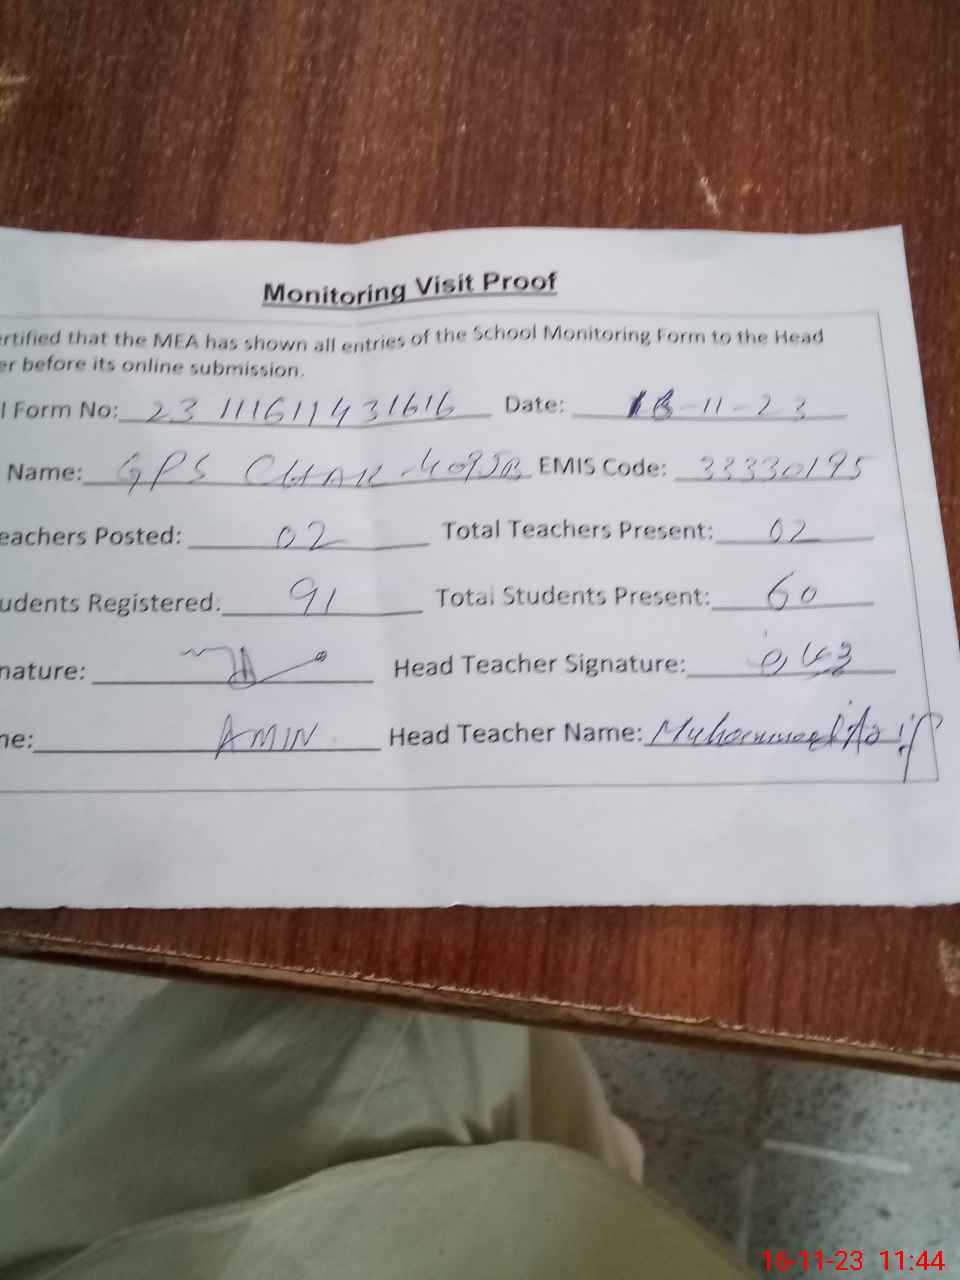 Monitoring Visit Proof
ertified that the MEA has shown all entries of the School Monitoring Form to the Head
er before its online submission.
l Form No: 23111611431616 Date: 16-11-23
Name: GPS CHAK 409JB EMIS Code: 33330195
eachers Posted: 02 Total Teachers Present: 02
udents Registered: 91 Total Students Present: 60
nature: Head Teacher Signature:
ne: AMIN Head Teacher Name: Muhammad Asif
16-11-23 11:44